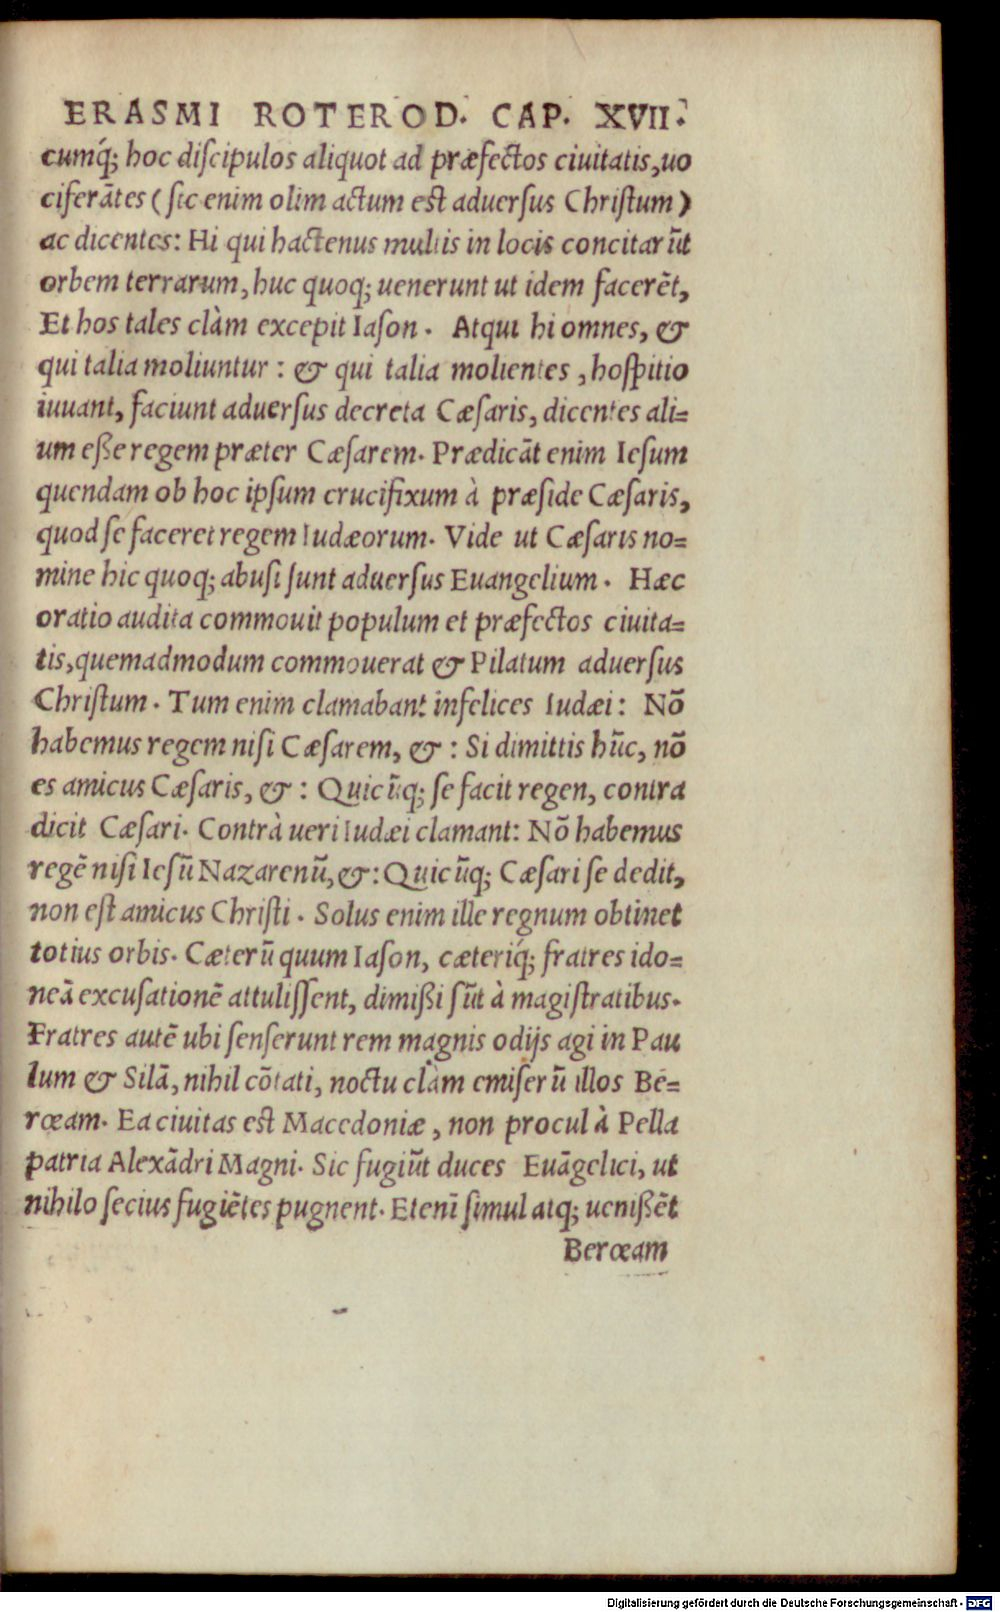 ERASMI ROTEROD. CAP. XVII.
cumq́; hoc diſcipulos aliquot ad præfectos ciuitatis,uo
ciferātes (ſic enim olim actum est aduerſus Chriſtum)
ac dicentes: Hi qui hactenus multis in locis concitarūt
orbem terrarum, huc quoq; uenerunt ut idem facerēt,
Et hos tales clàm excepit Iaſon. Atqui hi omnes, &
qui talia moliuntur: & qui talia molientes, hoſpitio
iuuant, faciunt aduerſus decreta Cæſaris, dicentes ali=
um eße regem præter Cæſarem. Prædicāt enim Ieſum
quendam ob hoc ipſum crucifixum à præſide Cæſaris,
quod ſe faceret regem Iudæorum. Vide ut Cæſaris no=
mine hic quoq; abuſi ſunt aduerſus Euangelium. Hæc
oratio audita commouit populum et præfectos ciuita=
tis,quemadmodum commouerat & Pilatum aduerſus
Chriſtum. Tum enim clamabant infelices Iudæi: Nō
habemus regem niſi Cæſarem, &: Si dimittis hūc, nō
es amicus Cæſaris, &: Quicūq; ſe facit regen, contra
dicit Cæſari. Contrà ueri Iudæi clamant: Nō habemus
regē niſi Ieſū Nazarenū, &: Quicūq; Cæſari ſe dedit,
non est amicus Chriſti. Solus enim ille regnum obtinet
totius orbis. Cæterū quum Iaſon, cæteriq́; fratres ido=
neā excuſationē attuliſſent, dimißi ſūt à magiſtratibus.
Fratres autē ubi ſenſerunt rem magnis odijs agi in Pau
lum & Silā, nihil cōtati, noctu clàm emiſerū illos Be=
rœam. Ea ciuitas est Macedoniæ, non procul à Pella
patria Alexādri Magni. Sic fugiūt duces Euāgelici, ut
nihilo ſecius fugiētes pugnent. Etenī ſimul atq; uenißēt
Berœam
Digitalisierung gefördert durch die Deutsche Forschungsgemeinschaft - DFG